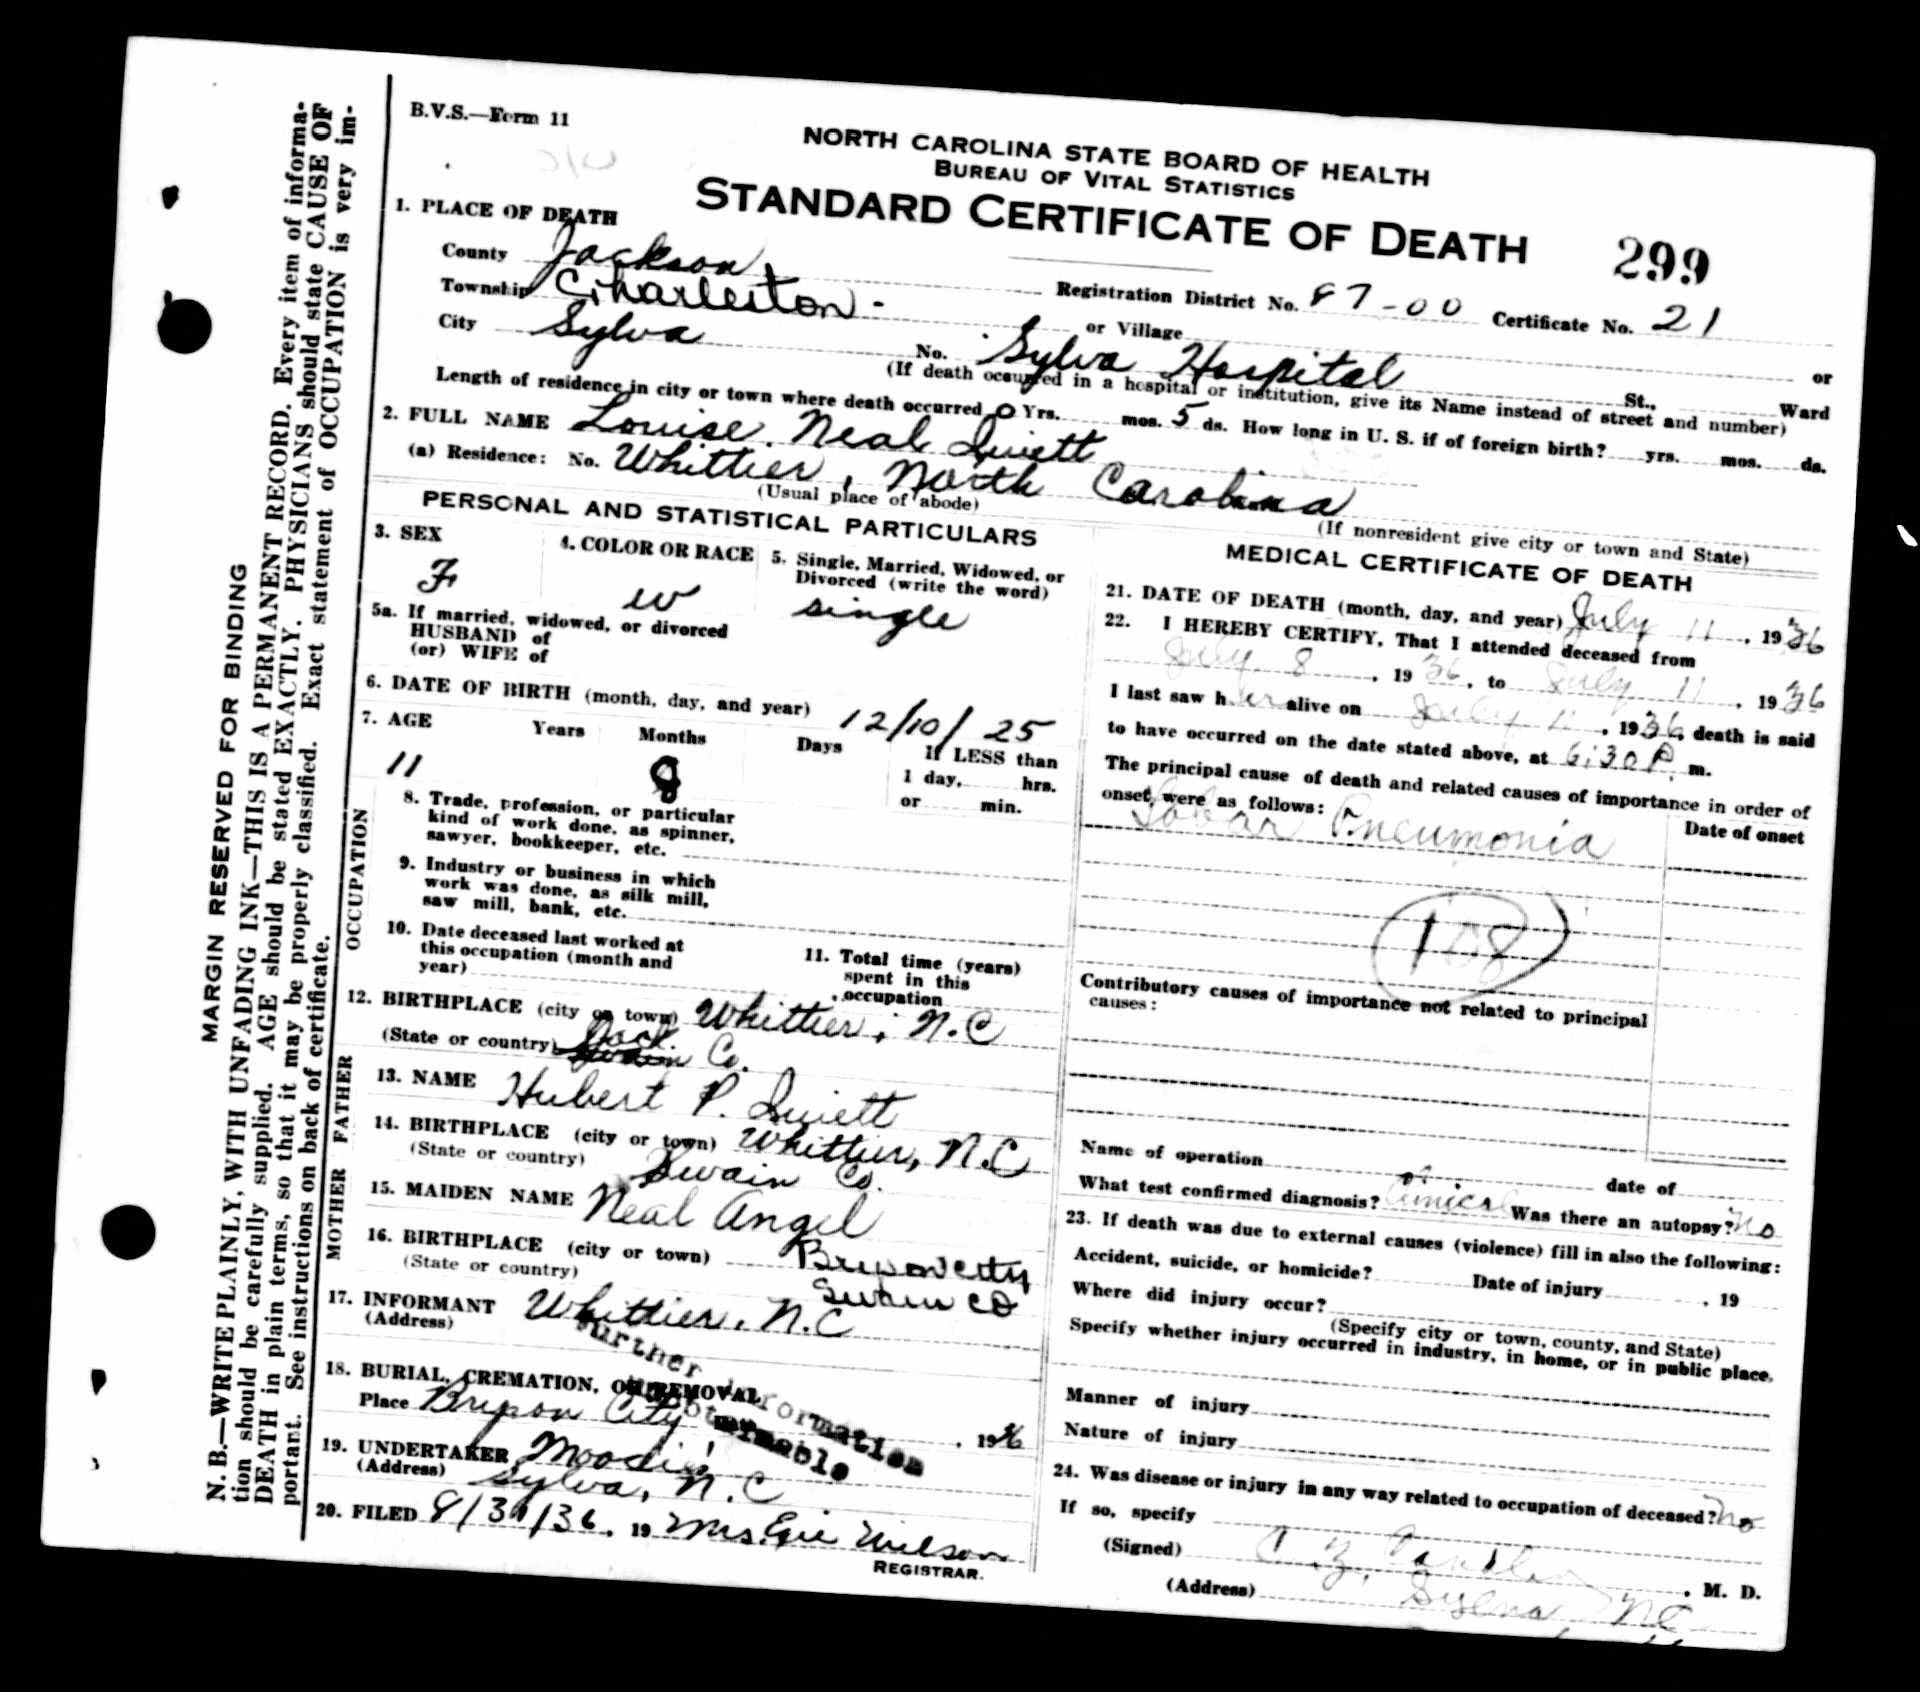 B.V.S.—Form 11
NORTH CAROLINA STATE BOARD OF HEALTH
BUREAU OF VITAL STATISTICS
STANDARD CERTIFICATE OF DEATH 299
1. PLACE OF DEATH
County Jackson Registration District No. 87-00 Certificate No. 21
Township Charleston - or Village or
City Sylva No. Sylva Hospital St., Ward
(If death occurred in a hospital or institution, give its Name instead of street and number)
Length of residence in city or town where death occurred 0 Yrs. mos. 5 ds. How long in U. S. if of foreign birth? yrs. mos. ds.
2. FULL NAME Louise Neal
(a) Residence: No. Whittier, North Carolina
(Usual place of abode) (If nonresident give city or town and State)
PERSONAL AND STATISTICAL PARTICULARS
3. SEX 4. COLOR OR RACE 5. Single, Married, Widowed, or
Divorced (write the word)
F W single
5a. If married, widowed, or divorced
HUSBAND of
(or) WIFE of
6. DATE OF BIRTH (month, day, and year) 12/10/25
7. AGE Years Months Days If LESS than
1 day, hrs.
or min.
11 8
OCCUPATION
8. Trade, profession, or particular
kind of work done, as spinner,
sawyer, bookkeeper, etc.
9. Industry or business in which
work was done, as silk mill,
saw mill, bank, etc.
10. Date deceased last worked at
this occupation (month and
year)
11. Total time (years)
spent in this
occupation
12. BIRTHPLACE (city or town) Whittier, N.C
(State or country) Jack. Co.
FATHER
13. NAME Hubert P.
14. BIRTHPLACE (city or town) Whittier, N.C
(State or country) Swain Co.
MOTHER
15. MAIDEN NAME Neal Angel
16. BIRTHPLACE (city or town) Bryson City
(State or country) Swain Co
17. INFORMANT Whittier, N.C
(Address)
Further information
not obtainable
18. BURIAL, CREMATION, OR REMOVAL
Place Bryson City , 1936
19. UNDERTAKER Moodie's
(Address) Sylva, N.C
20. FILED 8/31/36, 19 Mrs. Wilson
REGISTRAR.
MEDICAL CERTIFICATE OF DEATH
21. DATE OF DEATH (month, day, and year) July 11, 1936
22. I HEREBY CERTIFY, That I attended deceased from
July 8, 1936, to July 11, 1936
I last saw her alive on July 11, 1936, death is said
to have occurred on the date stated above, at 6:30 P. m.
The principal cause of death and related causes of importance in order of
onset were as follows: Date of onset
Lobar Pneumonia
108
Contributory causes of importance not related to principal
causes:
Name of operation date of
What test confirmed diagnosis? Clinical Was there an autopsy? No
23. If death was due to external causes (violence) fill in also the following:
Accident, suicide, or homicide? Date of injury , 19
Where did injury occur?
(Specify city or town, county, and State)
Specify whether injury occurred in industry, in home, or in public place.
Manner of injury
Nature of injury
24. Was disease or injury in any way related to occupation of deceased? No
If so, specify
(Signed) , M. D.
(Address) Sylva NC
MARGIN RESERVED FOR BINDING
N. B.—WRITE PLAINLY, WITH UNFADING INK—THIS IS A PERMANENT RECORD. Every item of informa-
tion should be carefully supplied. AGE should be stated EXACTLY. PHYSICIANS should state CAUSE OF
DEATH in plain terms, so that it may be properly classified. Exact statement of OCCUPATION is very im-
portant. See instructions on back of certificate.